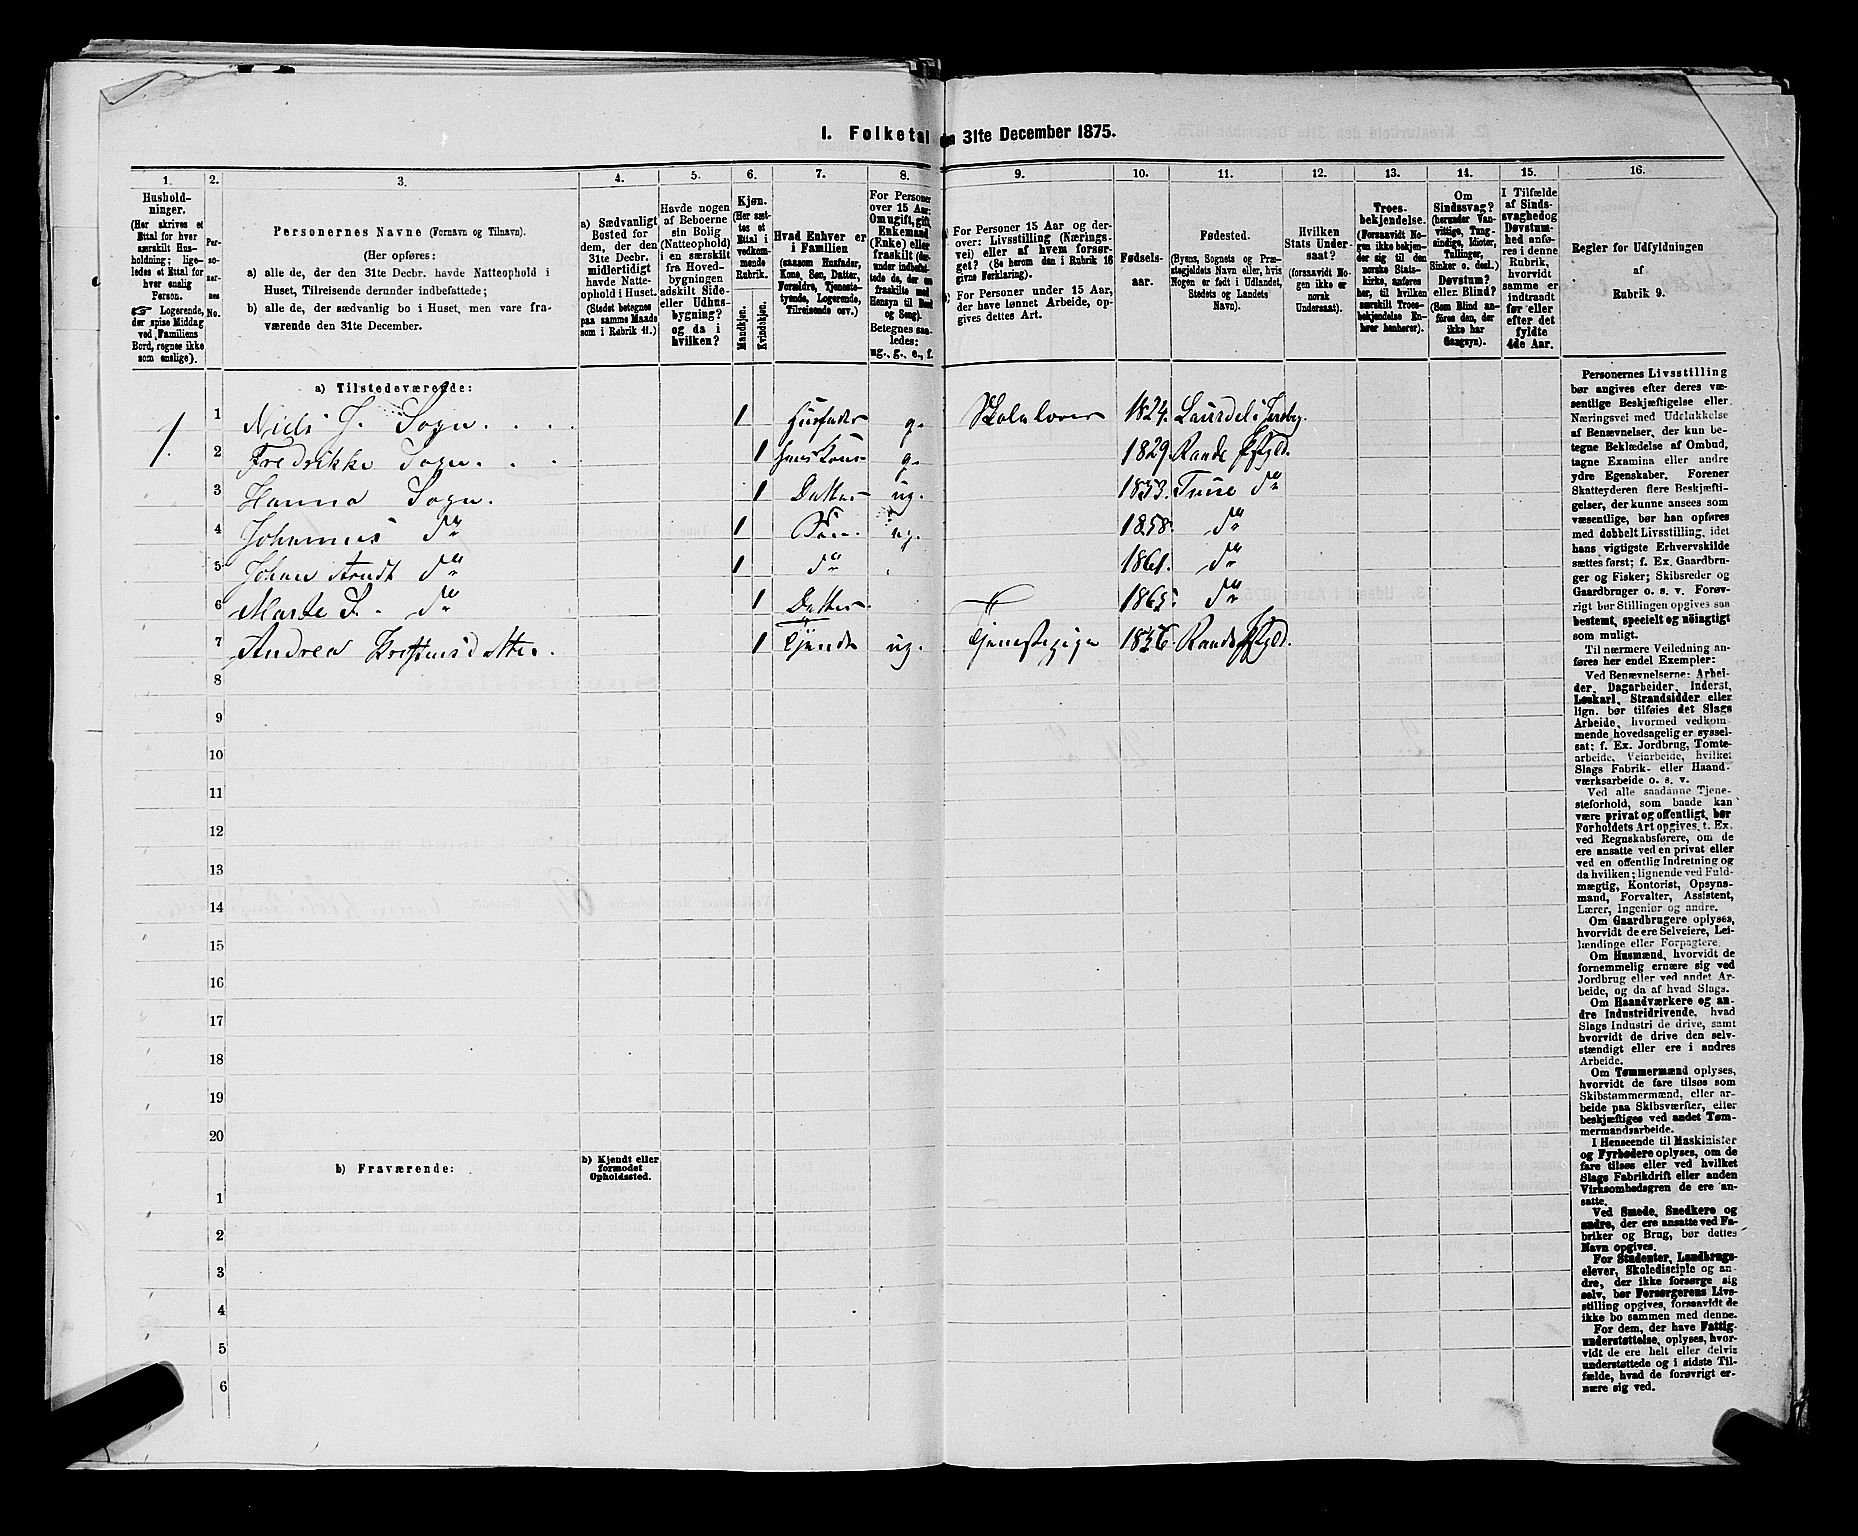 1. Folketal den 31te December 1875.
1. 2. 3. 4. 5. 6. 7. 8. 9. 10. 11. 12. 13. 14. 15. 16.
Hushold-
ninger.
(Her skrives et
Ettal for hver
særskilt Hus-
holdning; lige-
ledes et Ettal for
hver enslig
Person.
Logerende,
der spise Middag
ved Familiens
Bord, regnes ikke
som enslige).
Per-
so-
ner-
nes
No.
Personernes Navne (Fornavn og Tilnavn).
(Her opføres:
a) alle de, der den 31te Decbr. havde Natteophold i
Huset, Tilreisende derunder indbefattede;
b) alle de, der sædvanlig bo i Huset, men vare fra-
værende den 31te December.
a) Sædvanligt
Bosted for
dem, der den
31te Decbr.
midlertidigt
havde Natte-
ophold i Huset.
(Stedet betegnes
paa samme Maade
som i Rubrik 11.)
Havde nogen
af Beboerne
sin Bolig
(Natteophold)
i en særskilt
fra Hoved-
bygningen
adskilt Side-
eller Udhus-
bygning?
og da i
hvilken?
Kjøn.
(Her sæt-
tes et
Ettal i
vedkom-
mende
Rubrik.
Mandkjøn.
Kvindekjøn.
Hvad Enhver er
i Familien
(saasom Husfader,
Kone, Søn, Datter,
Forældre, Tjeneste-
tyende, Logerende,
Tilreisende osv.)
For Personer
over 15 Aar:
Om ugift, gift,
Enkemand
(Enke) eller
fraskilt (der-
under indbefat-
tede de, der ere
fraskilte med
Hensyn til Bord
og Seng).
Betegnes saa-
ledes:
ug., g., e., f.
For Personer 15 Aar og der-
over: Livsstilling (Nærings-
vei) eller af hvem forsør-
get? (Se herom den i Rubrik 16
givne Forklaring).
For Personer under 15 Aar,
der have lønnet Arbeide, op-
gives dettes Art.
Fødsels-
aar.
Fødested.
(Byens, Sognets og Præ-
stegjeldets Navn eller, hvis
Nogen er født i Udlandet,
Stedets og Landets
Navn).
Hvilken
Stats Under-
saat?
(forsaavidt No-
gen ikke er
norsk
Undersaat).
Troes-
bekjendelse.
(Forsaavidt No-
gen ikke bekjen-
der sig til den
norske Stats-
kirke, anføres
her, til hvilken
særskilt Troes-
bekjendelse En-
hver henhører).
Om
Sindssvag?
(herunder Van-
vittige, Tung-
sindige, Idioter,
Tullinger,
Sinker o. desl.)
Døvstum?
eller Blind?
(Som Blind an-
føres den, der
ikke har
Gangsyn).
I Tilfælde
af Sinds-
svaghed og
Døvstum-
hed anfø-
res i denne
Rubrik,
hvorvidt
samme er
indtraadt
før eller
efter det
fyldte
4de Aar.
Regler for Udfyldningen
af
Rubrik 9.
a) Tilstedeværende:
1. 1 Niels J. Sogn. 1 Husfader g. Skolelærer 1824. Laurdal i
2 Fredrikke Sogn. 1 g. 1829. Rande
3 Hanna Sogn. 1 Datter ug. 1853. do
4 Johannes do 1 Søn ug. 1858. do
5 Johan Arndt do 1 do 1861. do
6 Marte S. do 1 Datter 1865. do
7 Andrea Kristensdatter 1 Tjende ug. Tjenestepige 1856. Rande
8
9
10
11
12
13
14
15
16
17
18
19
20
b) Fraværende:
b) Kjendt eller
formodet
Opholdssted.
1
2
3
4
5
6
Personernes Livsstilling
bør angives efter deres væ-
sentlige Beskjæftigelse eller
Næringsvei med Udelukkelse
af Benævnelser, der kun be-
tegne Beklædelse af Ombud,
tagne Examina eller andre
ydre Egenskaber. Forener
Skatteyderen flere Beskjæfti-
gelser, der kunne ansees som
væsentlige, bør han opføres
med dobbelt Livsstilling, idet
hans vigtigste Erhvervskilde
sættes først; f. Ex. Gaardbru-
ger og Fisker; Skibsreder og
Gaardbruger o. s. v. Forøv-
rigt bør Stillingen opgives saa
bestemt, specielt og nöiagtigt
som muligt.
Til nærmere Veiledning an-
føres her endel Exempler:
Ved Benævnelserne: Arbei-
der, Dagarbeider, Inderst,
Løskarl, Strandsidder eller
lign. bør tilføies det Slags
Arbeide, hvormed vedkom-
mende hovedsagelig er syssel-
sat; f. Ex. Jordbrug, Tomte-
arbeide, Veiarbeide, hvilket
Slags Fabrik- eller Haand-
værksarbeide o. s. v.
Ved alle saadanne Tjene-
steforhold, som baade kan
være privat og offentligt, bør
Forholdets Art opgives, t. Ex.
ved Regnskabsførere, om de
ere ansatte ved en privat eller
ved en offentlig Indretning og
da hvilken; lignende ved Fuld-
mægtig, Kontorist, Opsyns-
mand, Forvalter, Assistent,
Lærer, Ingeniør og andre.
Om Gaardbrugere oplyses,
hvorvidt de ere Selveiere, Lei-
lændinge eller Forpagtere.
Om Husmænd, hvorvidt de
fornemmelig ernære sig ved
Jordbrug eller ved andet Ar-
beide, og da af hvad Slags.
Om Haandværkere og an-
dre Industridrivende, hvad
Slags Industri de drive, samt
hvorvidt de drive den selv-
stændigt eller ere i andres
Arbeide.
Om Tømmermænd oplyses,
hvorvidt de fare tilsøs som
Skibstømmermænd, eller ar-
beide paa Skibsværfter, eller
beskjæftiges ved andet Tøm-
mermandsarbeide.
I Henseende til Maskinister
og Fyrbødere oplyses, om de
fare tilsøs eller ved hvilket
Slags Fabrikdrift eller anden
Virksomhedsgren de ere an-
satte.
Ved Smede, Snedkere og
andre, der ere ansatte ved Fa-
briker og Brug, bør dettes
Navn opgives.
For Studenter, Landbrugs-
elever, Skoledisciple og an-
dre, der ikke forsørge sig
selv, bør Forsørgerens Livs-
stilling opgives, forsaavidt de
ikke bo sammen med denne.
For dem, der have Fattig-
understøttelse, oplyses, hvor-
vidt de ere helt eller delvis
understøttede og i sidste Til-
fælde, hvad de forøvrigt er-
nære sig ved.